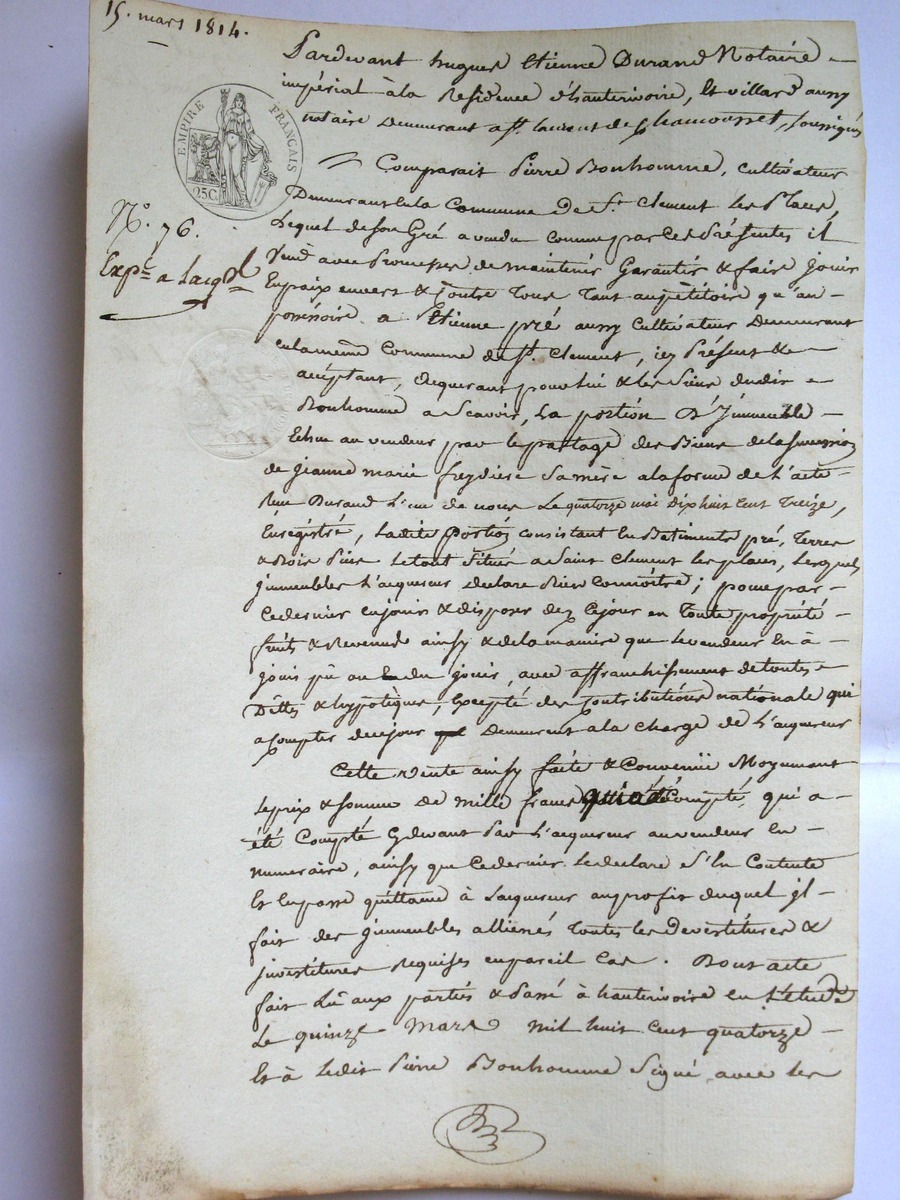 15. mars 1814.
Pardevant hugues Etienne Durand Notaire
impérial à la Residence d'hauterivoire, Et villard aussy
notaire Demeurant a st. laurent de Chamousset, soussignés
EMPIRE FRANÇAIS
25C.
Comparait Pierre Bonhomme, cultivateur
Demeurant En la Commune De St. Clement les Places,
N.° 76.
Lequel de son Gré a vendu comme par ces Présentes il
Vend avec Promesses de maintenir Garantir & faire jouir
Exp.on a l'acq.r
En paix envers & Contre Tous Tant au pétitoire qu'au
possessoire a Etienne pré aussy Cultivateur Demeurant
en la même Commune de St. Clement, icy Présent &
acceptant, acquerant pour lui & les Siens dudit
Bonhomme a Scavoir, La portion D'Immeuble
Echue au vendeur par le partage des Biens de la succession
de jeanne marie freydiere sa mère a la forme de L'acte
Reçu Durand L'un de nous Le quatorze mai Dix huit Cent Treize,
Enregistré, Ladite Portion consistant En Batiments pré, Terres
& Bois Pins Le tout Situés a Saint Clement les places, Lesquels
jmmeubles L'acquereur declare Bien Connoitre; pour par
Ce dernier en jouir & disposer dez Ce jour en Toute propriété
fruits & Revenus ainsy & de la maniere que le vendeur En à
joui pû ou du jouir, avec affranchissement de toutes
Dettes & hypotèques, Excepté des Contributions nationale qui
a compter de ce jour Demeurent a la charge de L'acquereur
Cette vente ainsy faite & Convenue Moyennant
Le prix & somme De mille francs Compté, qui a
été Compté Cy devant Par L'acquereur au vendeur En
numeraire, ainsy que Ce dernier Le declare S'En Contente
Et En passe quittance à L'acquereur au profit duquel jl
fait des jmmeubles alliénés Toutes les Devestitures &
jnvestitures Requises en pareil Cas. Dont acte
fait Lû aux parties & Passé à hauterivoire En L'étude
Le quinze Mars mil huit cent quatorze
Et à Ledit Pierre Bonhomme Signé avec les